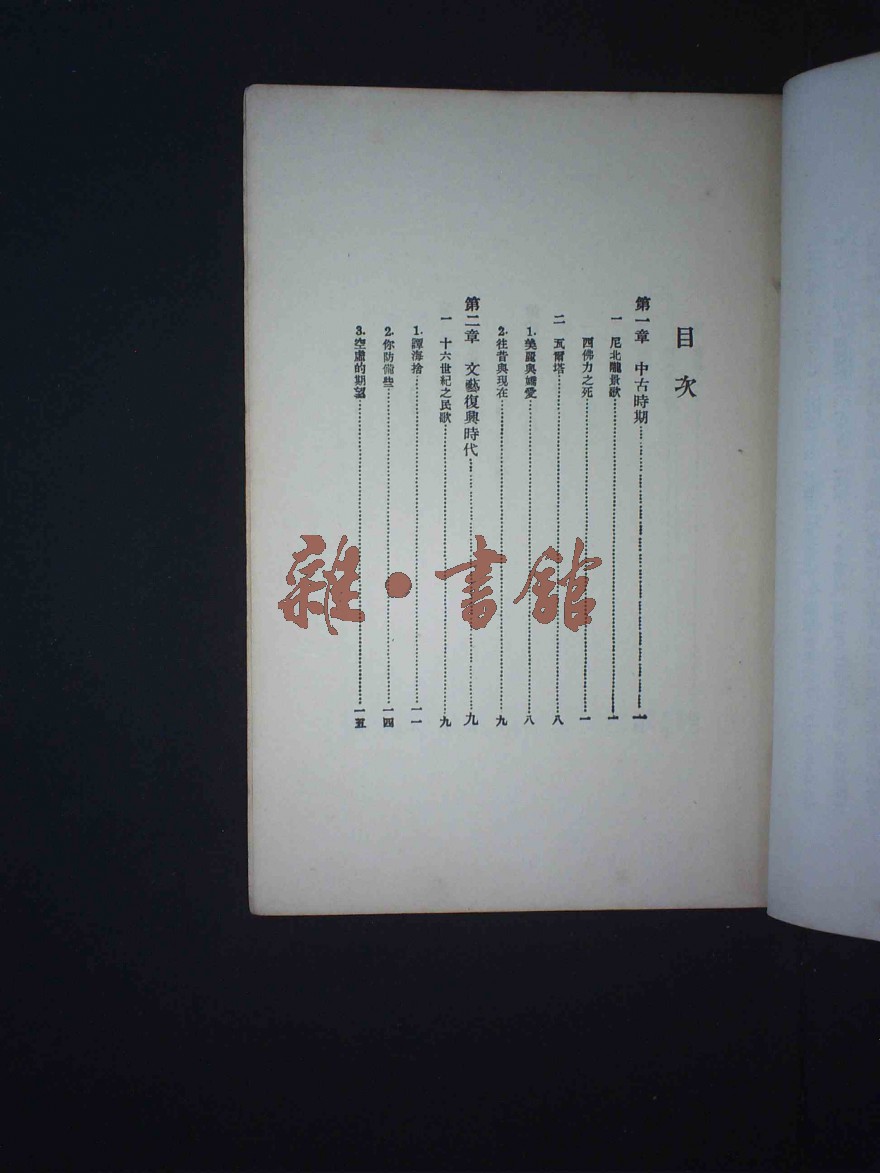 目次
第一章 中古時期 一
一 尼北龍景歌 一
西佛力之死 一
二 瓦爾塔 八
1. 美麗與嬌愛 八
2. 往昔與現在 九
第二章 文藝復興時代 九
一 十六世紀之民歌 九
1. 譚海捨 一一
2. 你防備些 一四
3. 空虛的期望 一五
雜·書館